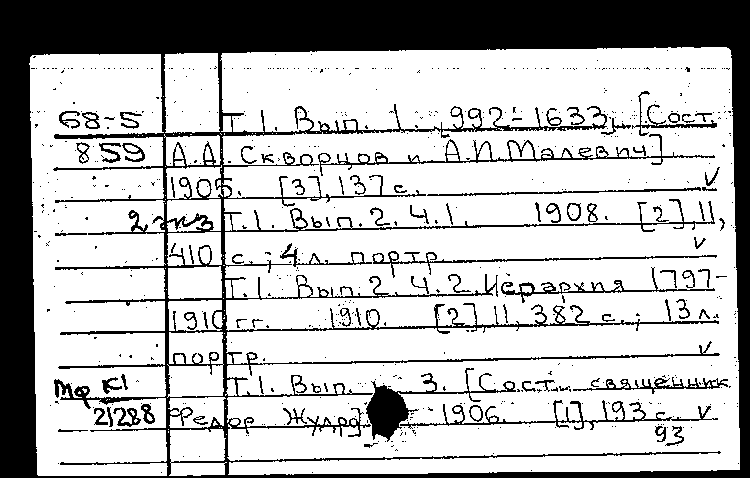 68-5 Т.1. Вып. 1. 992-1633, [Сост.
859 А.А. Скворцов и А.И. Малевич]
1905. [3], 137 с. ✓
2 экз Т.1. Вып. 2. Ч.1. 1908. [2], II,
410 с.; 4 л. портр ✓
Т.1. Вып. 2. Ч.2. Иерархия 1797-
1910 гг. 1910. [2], II, 382 с.; 13 л.
портр. ✓
Мф К1 Т.1. Вып. 3. [Сост. священник
2/288 Федор Жудро] 1906. [1], 193 с. ✓
93